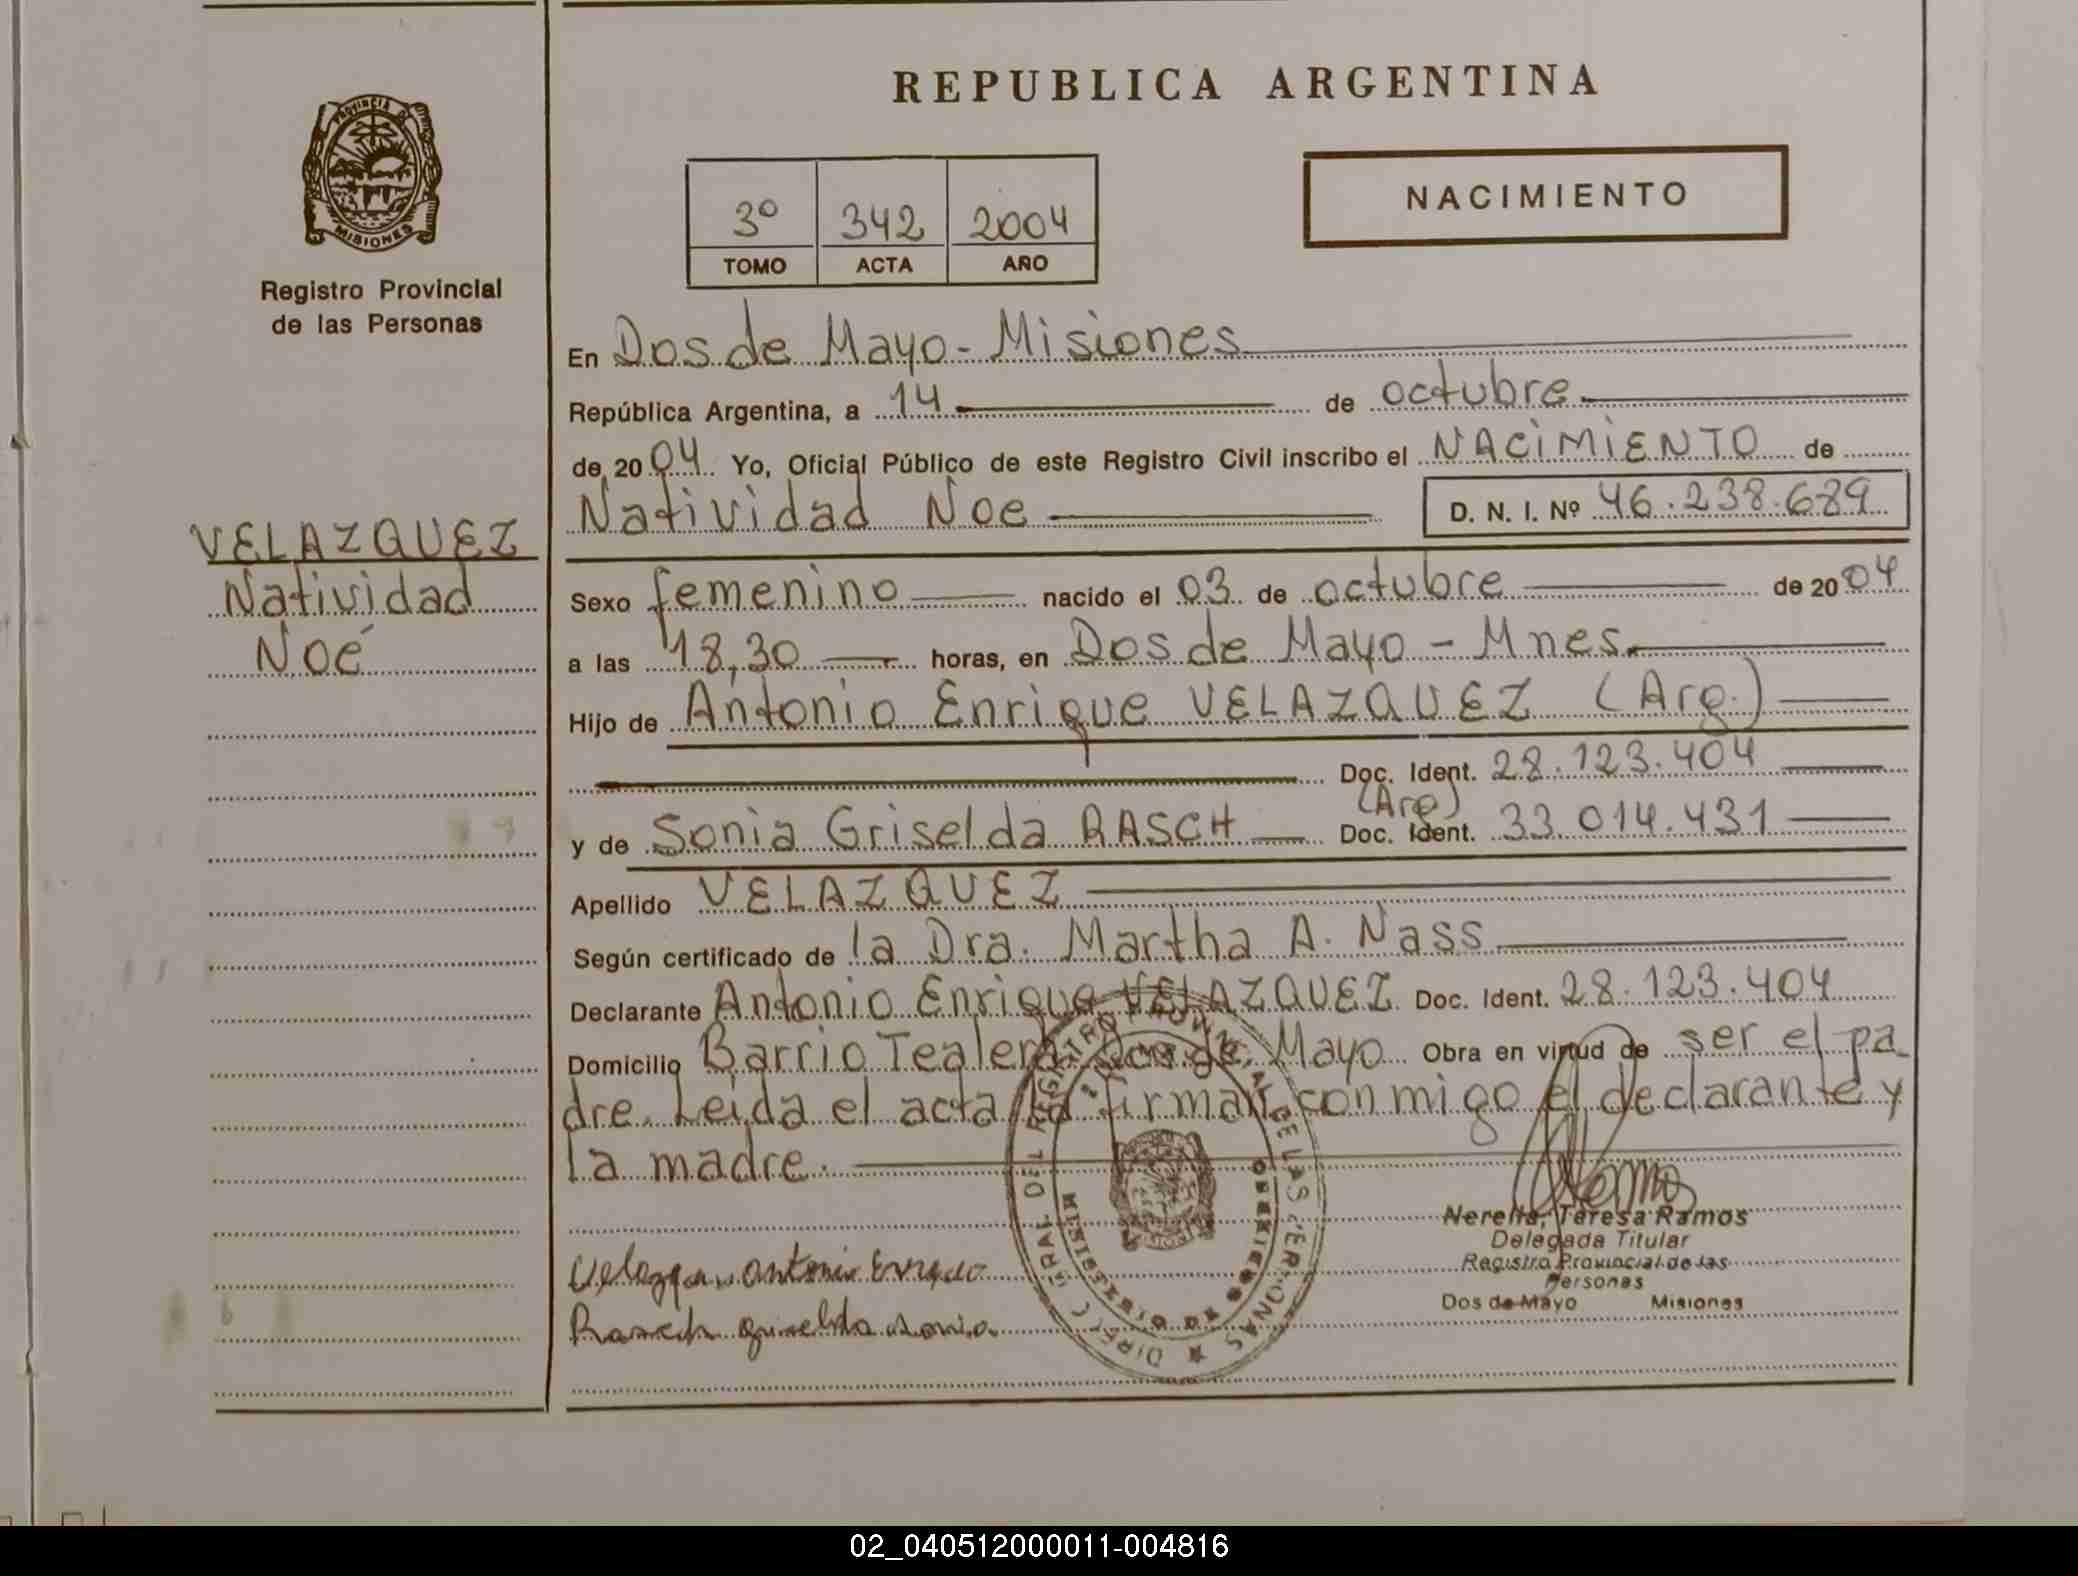 REPUBLICA ARGENTINA
PROVINCIA DE
MISIONES
Registro Provincial
de las Personas
NACIMIENTO
3º 342 2004
TOMO ACTA AÑO
En Dos de Mayo - Misiones
República Argentina, a 14 de octubre
de 2004 Yo, Oficial Público de este Registro Civil inscribo el NACIMIENTO de
Natividad Noe D. N. I. Nº 46.238.689
VELAZQUEZ
Natividad
Noé
Sexo femenino nacido el 03 de octubre de 2004
a las 18,30 horas, en Dos de Mayo - Mnes.
Hijo de Antonio Enrique VELAZQUEZ (Arg.)
Doc. Ident. 28.123.404
(Arg)
y de Sonia Griselda RASCH Doc. Ident. 33.014.431
Apellido VELAZQUEZ
Según certificado de la Dra. Martha A. Nass
Declarante Antonio Enrique VELAZQUEZ Doc. Ident. 28.123.404
Domicilio Barrio Tealera Dos de Mayo Obra en virtud de ser el pa_
dre. Leida el acta la firman conmigo el declarante y
la madre.
Nerella, Teresa Ramos
Delegada Titular
Registro Provincial de las
Personas
Dos de Mayo Misiones
Antonio Enrique
Rasch Griselda Sonia
DIREC. GRAL. DEL REGISTRO PROVINCIAL DE LAS PERSONAS
MISIONES
02_040512000011-004816